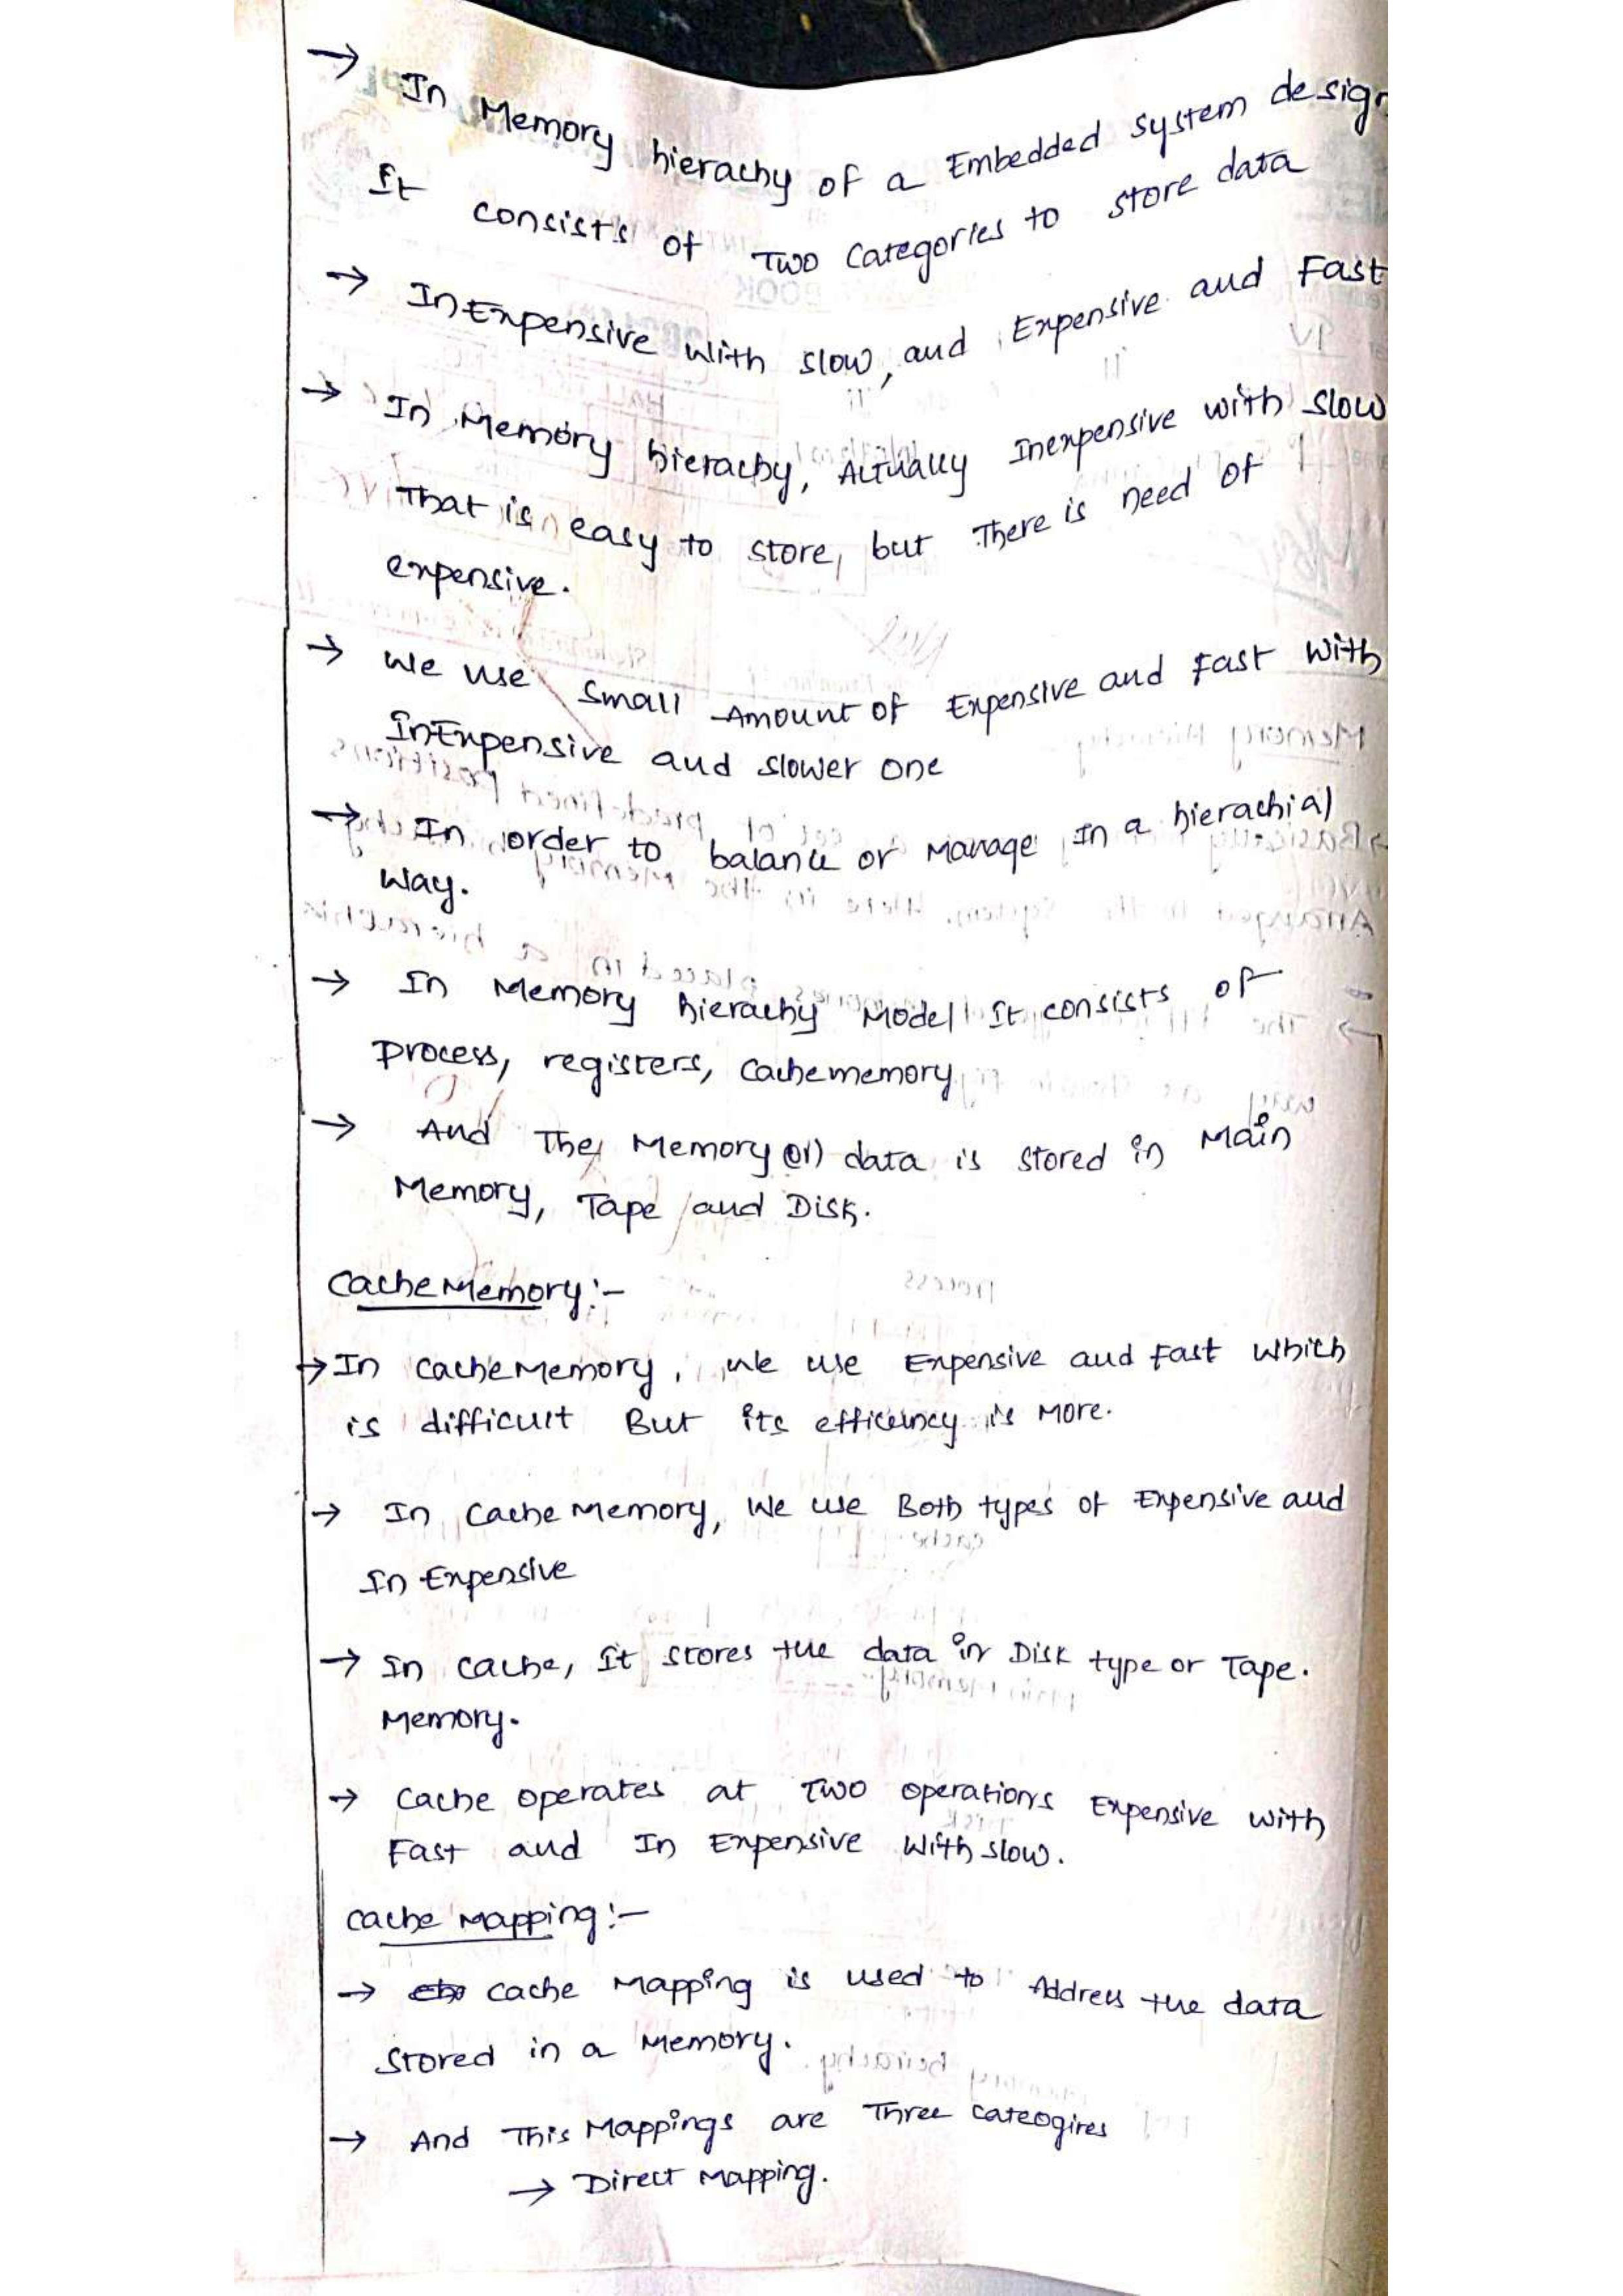 → In Memory hierachy of a Embedded system design
It consists of Two Categories to store data
→ InExpensive with slow, and Expensive and Fast
→ In Memory hierachy, Actually Inexpensive with slow
That is easy to store, but There is need of
expensive.
→ We use small Amount of Expensive and Fast with
InExpensive and slower one
→ In order to balance or Manage In a hierachial
way.
→ In Memory hierachy Model It consists of
process, registers, Cachememory
→ And The Memory (or) data is stored in Main
Memory, Tape and Disk.
Cache Memory:-
→ In cache Memory, we use Expensive and Fast which
is difficult But its efficeincy is More.
→ In Cache Memory, We use Both types of Expensive and
In Expensive
→ In cache, It stores the data in Disk type or Tape.
Memory.
→ Cache operates at Two operations Expensive with
Fast and In Expensive With slow.
Cache Mapping:-
→ cache Mapping is used to Address the data
stored in a Memory.
→ And This Mappings are Three cateogires
→ Direct Mapping.